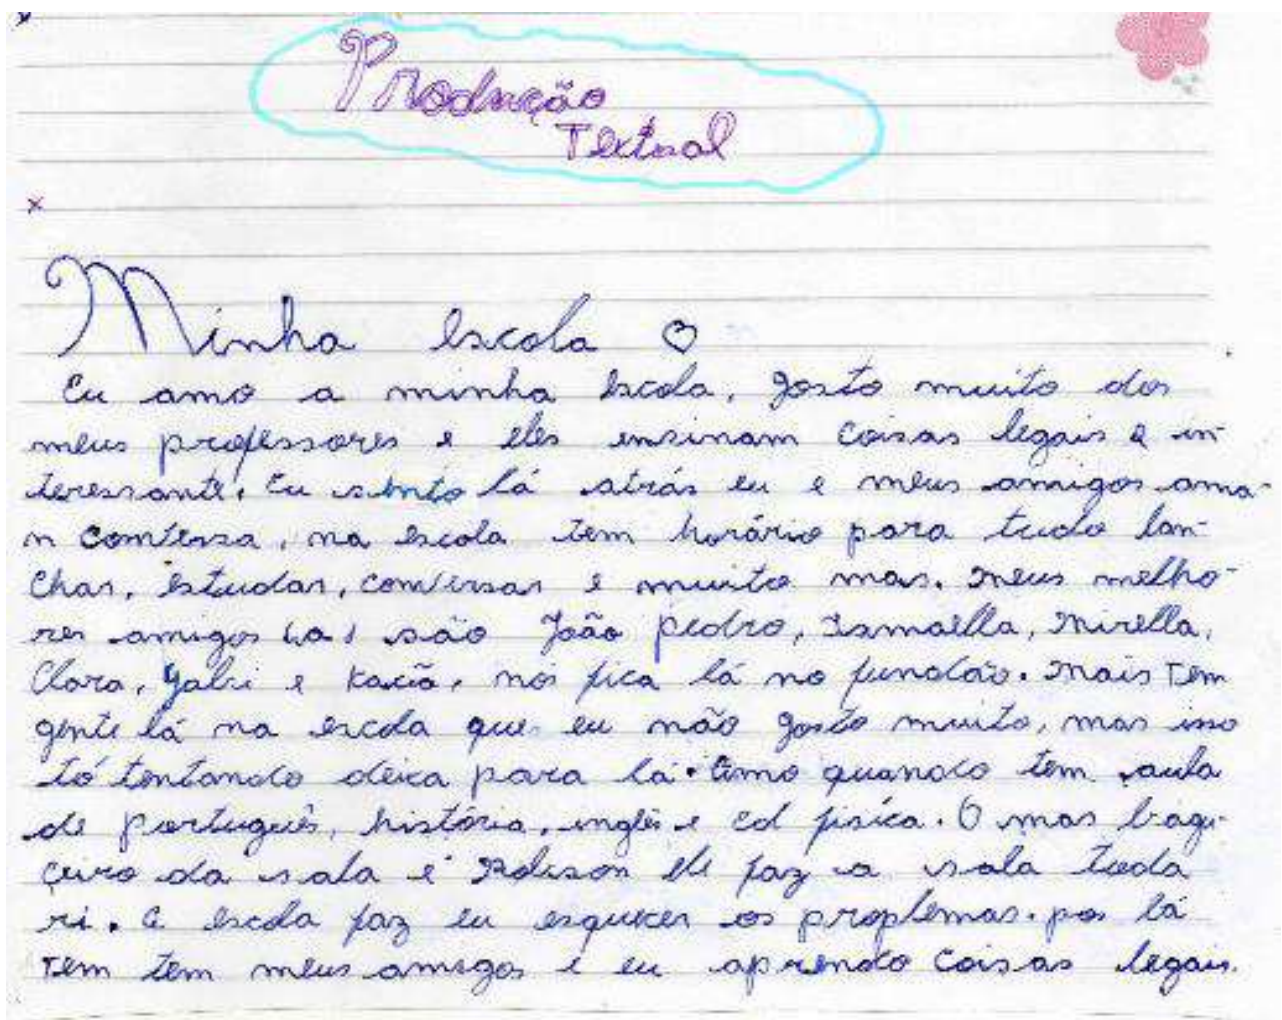 Produção
Textual
Minha escola
Eu amo a minha escola, gosto muito dos
meus professores e eles ensinam coisas legais e in-
teressante. Eu sento lá atrás eu e meus amigos ama-
m conversa, na escola tem horário para tudo lan-
char, estudar, conversar e muito mas. meus melho-
res amigos (a) são João pedro, Ismaella, Mirella,
Clara, Gabri e, nós fica lá no fundão. Mais tem
gente lá na escola que eu não gosto muito, mas isso
tó tentando deixa para lá. Amo quando tem aula
de português, história, inglês e ed física. O mas bagu-
çeiro da sala é ele faz a sala toda
ri. A escola faz eu esquecer os proplemas. pos lá
tem tem meus amigos e eu aprendo coisas legais.